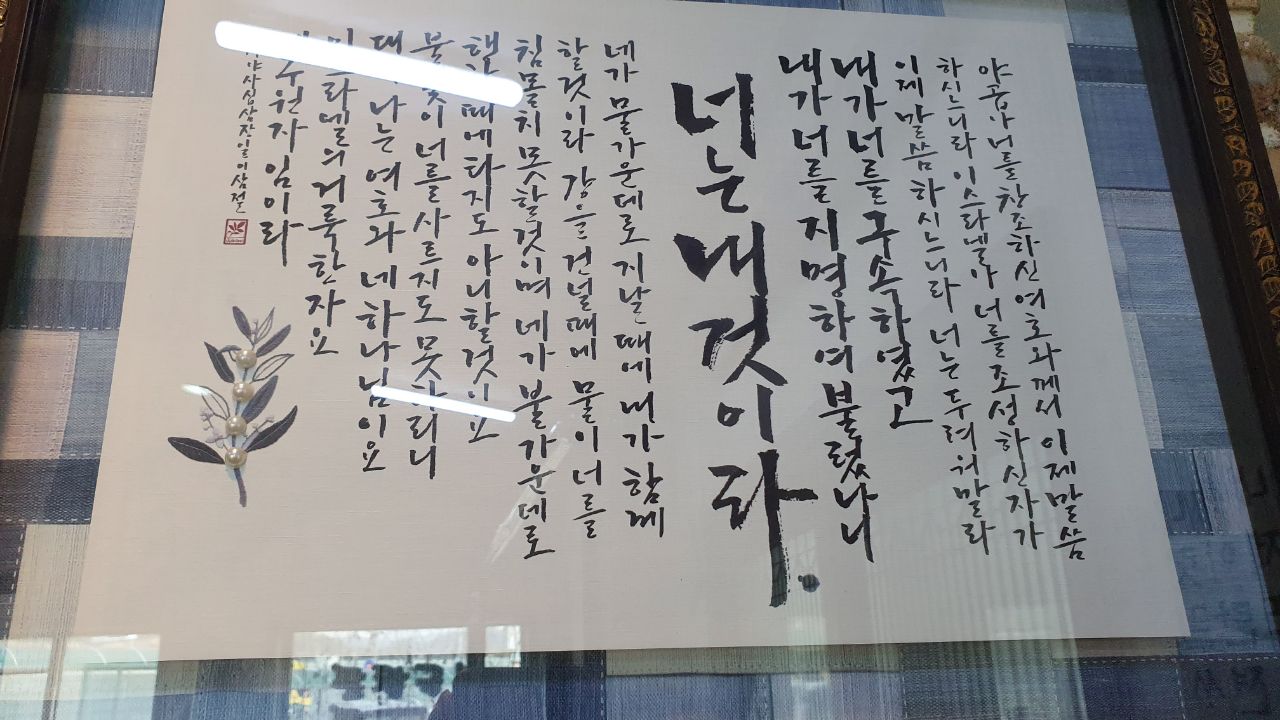 야곱아 너를 창조하신 여호와께서 이제 말씀
하시느니라 이스라엘아 너를 조성하신 자가
이제 말씀하시느니라 너는 두려워 말라
내가 너를 구속하였고
내가 너를 지명하여 불렀나니
너는 내 것이라.
네가 물 가운데로 지날 때에 내가 함께
할 것이라 강을 건널 때에 물이 너를
침몰치 못할 것이며 네가 불 가운데로
행할 때에 타지도 아니할 것이요
불꽃이 너를 사르지도 못하리니
나는 여호와 네 하나님이요
이스라엘의 거룩한 자요
구원자임이라
사십삼장 일이삼절